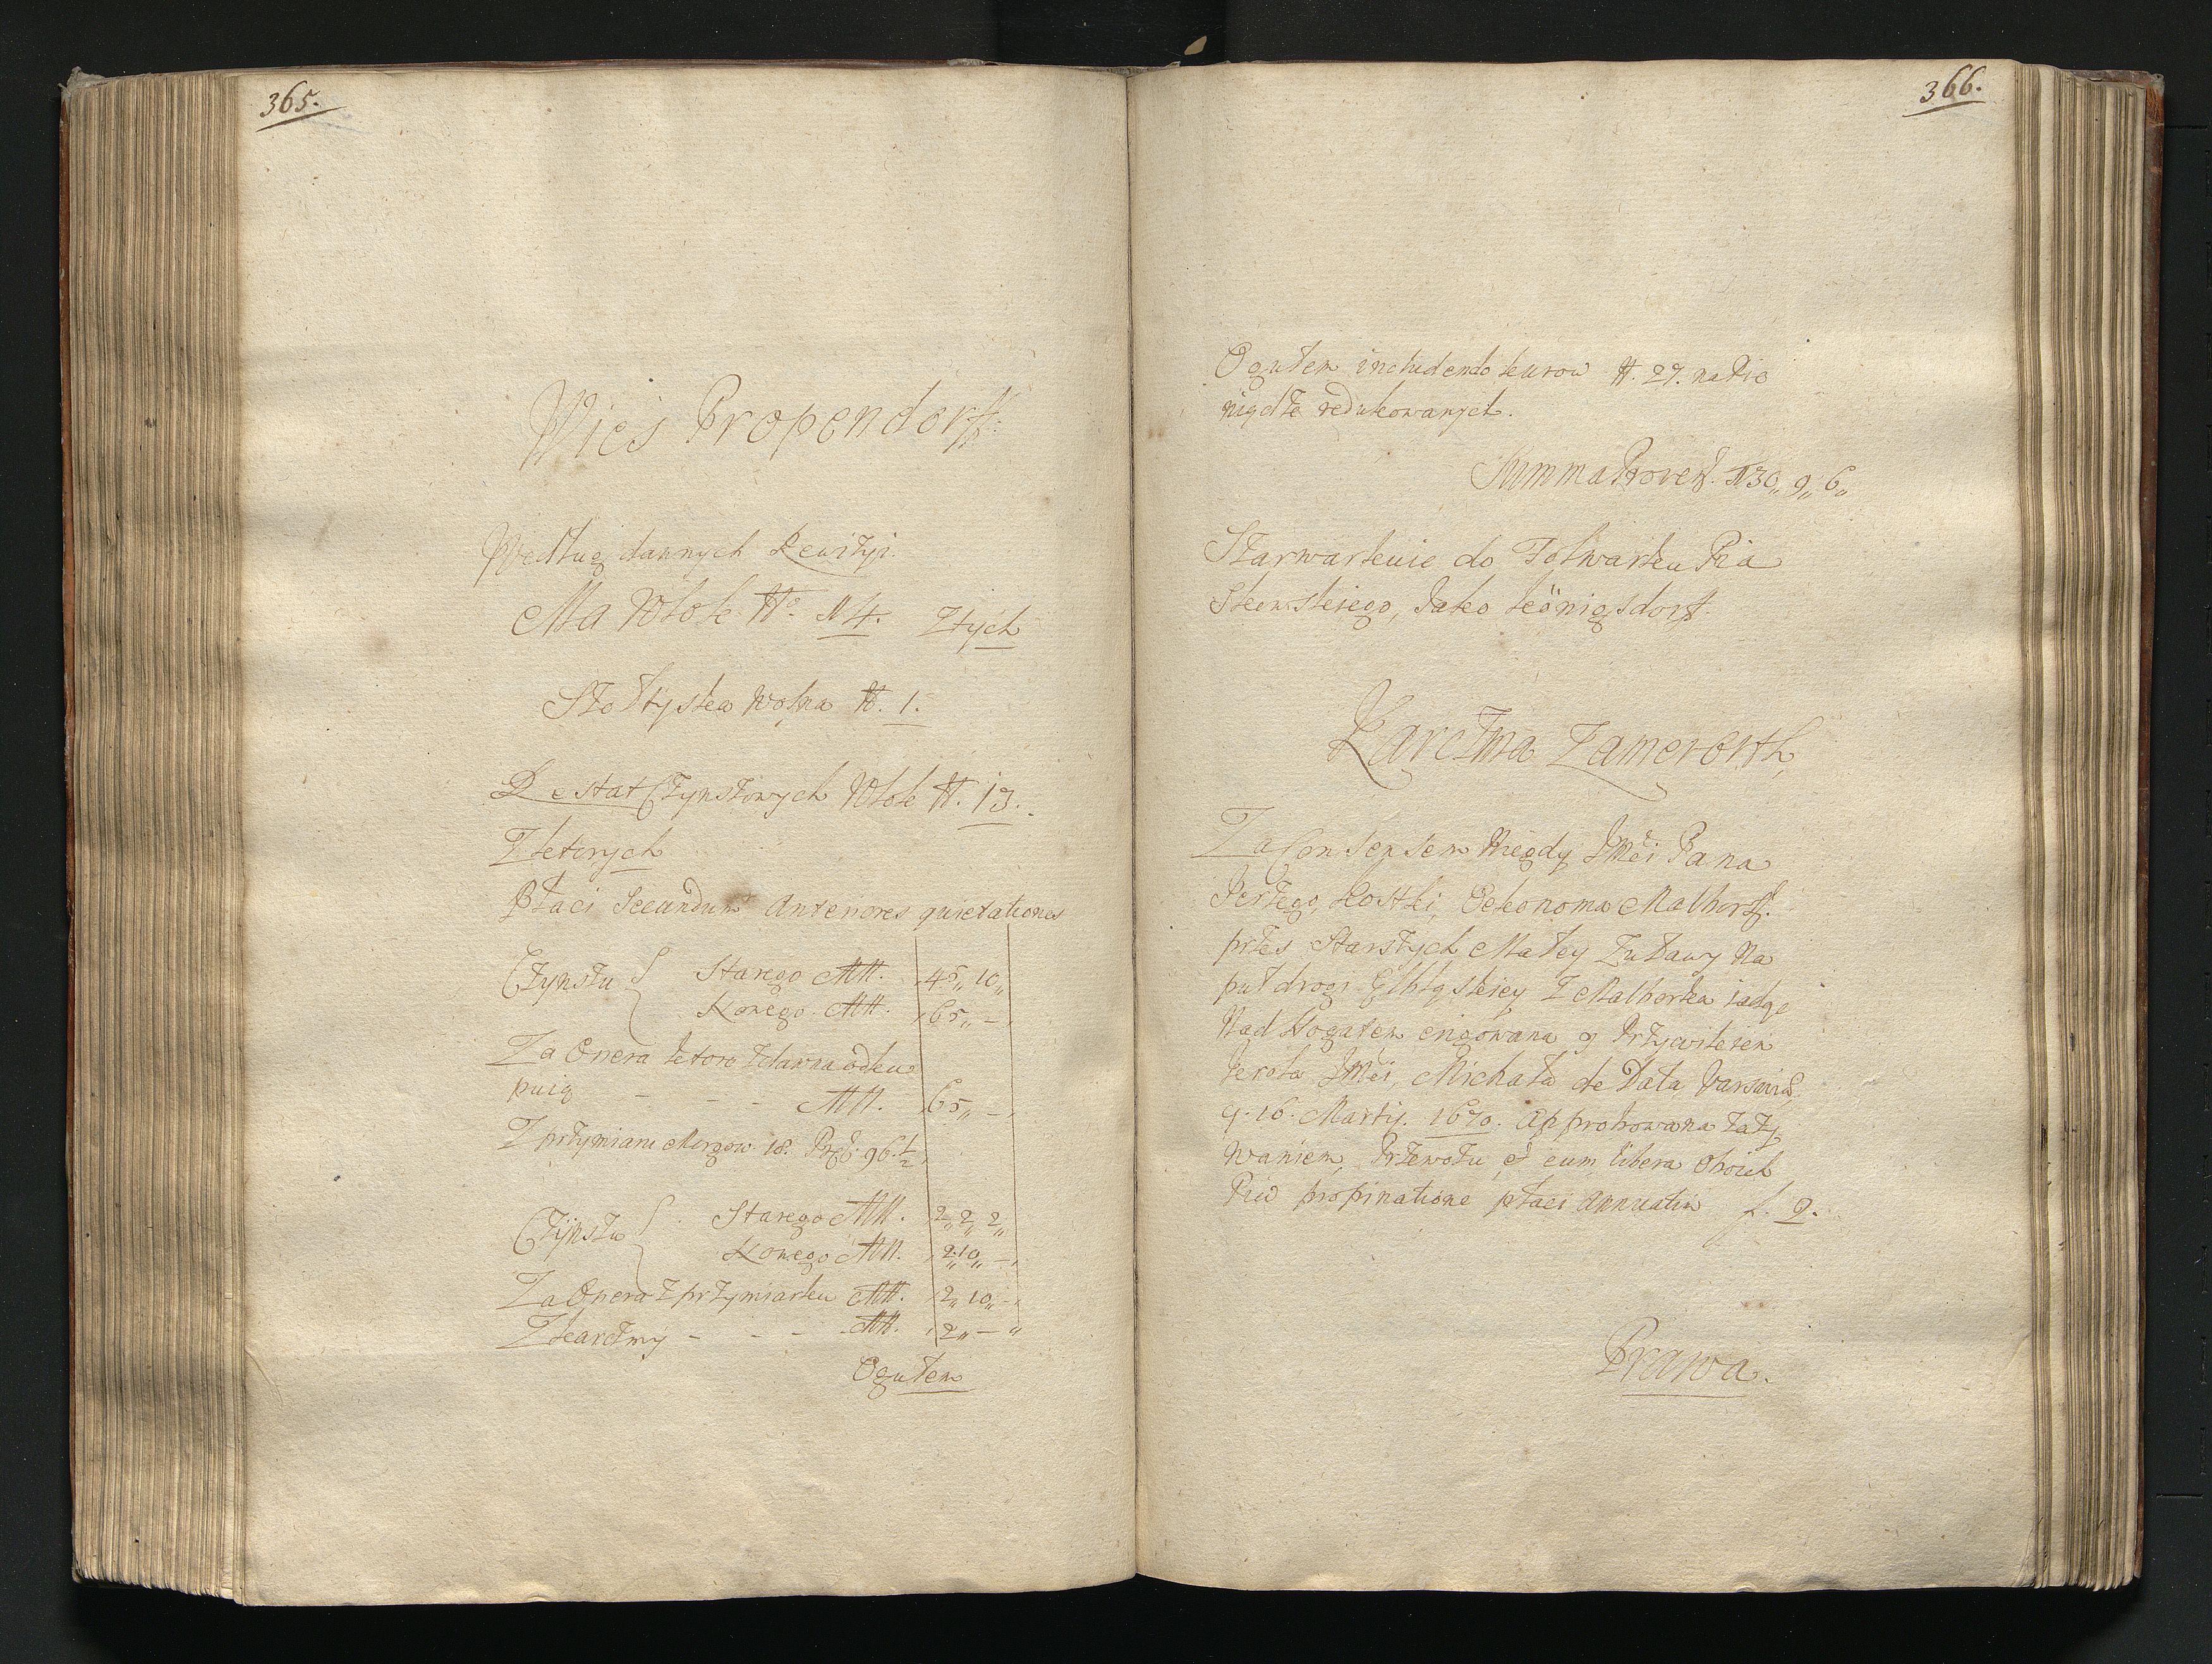 365.
Wieś Propendorff.
Według dannych Rewizyi.
Ma Włok No. 14. Z tych
Szołtyska Wolna N. 1.
Restat Czynszowych Włok N. 13.
Z ktorych
Płaci Secundum Anteriores quietationes
Czynszu Starego MM. 45,, 10,,
Nowego MM. 65,, –,
Za Opera ktore z dawna odku
puią – – – MM. 65,, –,
Z przymiaru Morgow 18. Pręt. 96 ½,
Czÿnszu Starego MM. 2,, 2,, 2,,
Nowego MM. 2,, 10,, –,
Za Opera z przymiarku MM. 2,, 10,, –,
Z karczmy – – – MM. 2,, – ,,
Ogułem
366.
Ogułem includendo kurow N. 27. na Pie
niądze redukowanych.
Summa Prove. 30,, 9,, 6,,
Szarwarkuie do Folwarku Pia
skowskiego, Jako Königsdorff.
Karczma Zameroth,
Za Consensem Niegdy JMći Pana
Jerzego Kostki, Oekonoma Malbors.
przes Starszych Małey Zuławy Na
puł drogi Elbląskiey z Malborka iadąc
Nad Nogatem erigowana y Przywileiem
Krola JMći, Michała de Data Varsavia
d. 16. Martij. 1670. Approbowana zaży
waniem, Przewozu, et cum libera oboiek
Piw propinatione płaci Annuatim f. 9.
Prawa.